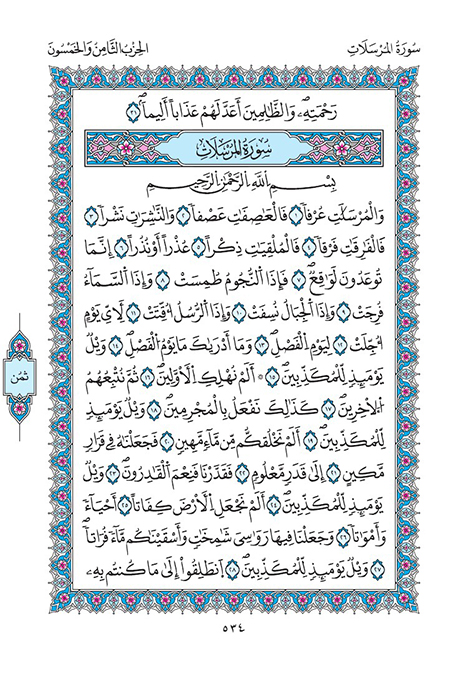 سورة المرسلات
الحزب الثامن والخمسون
رَحْمَتِهِۦ وَالظَّٰلِمِينَ أَعَدَّ لَهُمْ عَذَاباً أَلِيماً ٣١
سورة المرسلات
بِسْمِ اللَّهِ الرَّحْمَٰنِ الرَّحِيمِ
وَالْمُرْسَلَٰتِ عُرْفاً ١ فَالْعَٰصِفَٰتِ عَصْفاً ٢ وَالنَّٰشِرَٰتِ نَشْراً ٣
فَالْفَٰرِقَٰتِ فَرْقاً ٤ فَالْمُلْقِيَٰتِ ذِكْراً ٥ عُذْراً أَوْ نُذُراً ٦ إِنَّمَا
تُوعَدُونَ لَوَٰقِعٌ ٧ فَإِذَا النُّجُومُ طُمِسَتْ ٨ وَإِذَا السَّمَآءُ
فُرِجَتْ ٩ وَإِذَا الْجِبَالُ نُسِفَتْ ١٠ وَإِذَا الرُّسُلُ أُقِّتَتْ ١١ لِأَيِّ يَوْمٍ
أُجِّلَتْ ١٢ لِيَوْمِ الْفَصْلِ ١٣ وَمَا أَدْرَىٰكَ مَا يَوْمُ الْفَصْلِ ١٤ وَيْلٌ
يَوْمَئِذٍ لِّلْمُكَذِّبِينَ ١٥ أَلَمْ نُهْلِكِ الْأَوَّلِينَ ١٦ ثُمَّ نُتْبِعُهُمُ
الْأَخِرِينَ ١٧ كَذَٰلِكَ نَفْعَلُ بِالْمُجْرِمِينَ ١٨ وَيْلٌ يَوْمَئِذٍ
لِّلْمُكَذِّبِينَ ١٩ أَلَمْ نَخْلُقكُّم مِّن مَّآءٍ مَّهِينٍ ٢٠ فَجَعَلْنَٰهُ فِي قَرَارٍ
مَّكِينٍ ٢١ إِلَىٰ قَدَرٍ مَّعْلُومٍ ٢٢ فَقَدَّرْنَا فَنِعْمَ الْقَٰدِرُونَ ٢٣ وَيْلٌ
يَوْمَئِذٍ لِّلْمُكَذِّبِينَ ٢٤ أَلَمْ نَجْعَلِ الْأَرْضَ كِفَاتاً ٢٥ أَحْيَآءً
وَأَمْوَٰتاً ٢٦ وَجَعَلْنَا فِيهَا رَوَٰسِيَ شَٰمِخَٰتٍ وَأَسْقَيْنَٰكُم مَّآءً فُرَاتاً
٢٧ وَيْلٌ يَوْمَئِذٍ لِّلْمُكَذِّبِينَ ٢٨ انطَلِقُوا إِلَىٰ مَا كُنتُم بِهِۦ
ثمن
٥٣٤